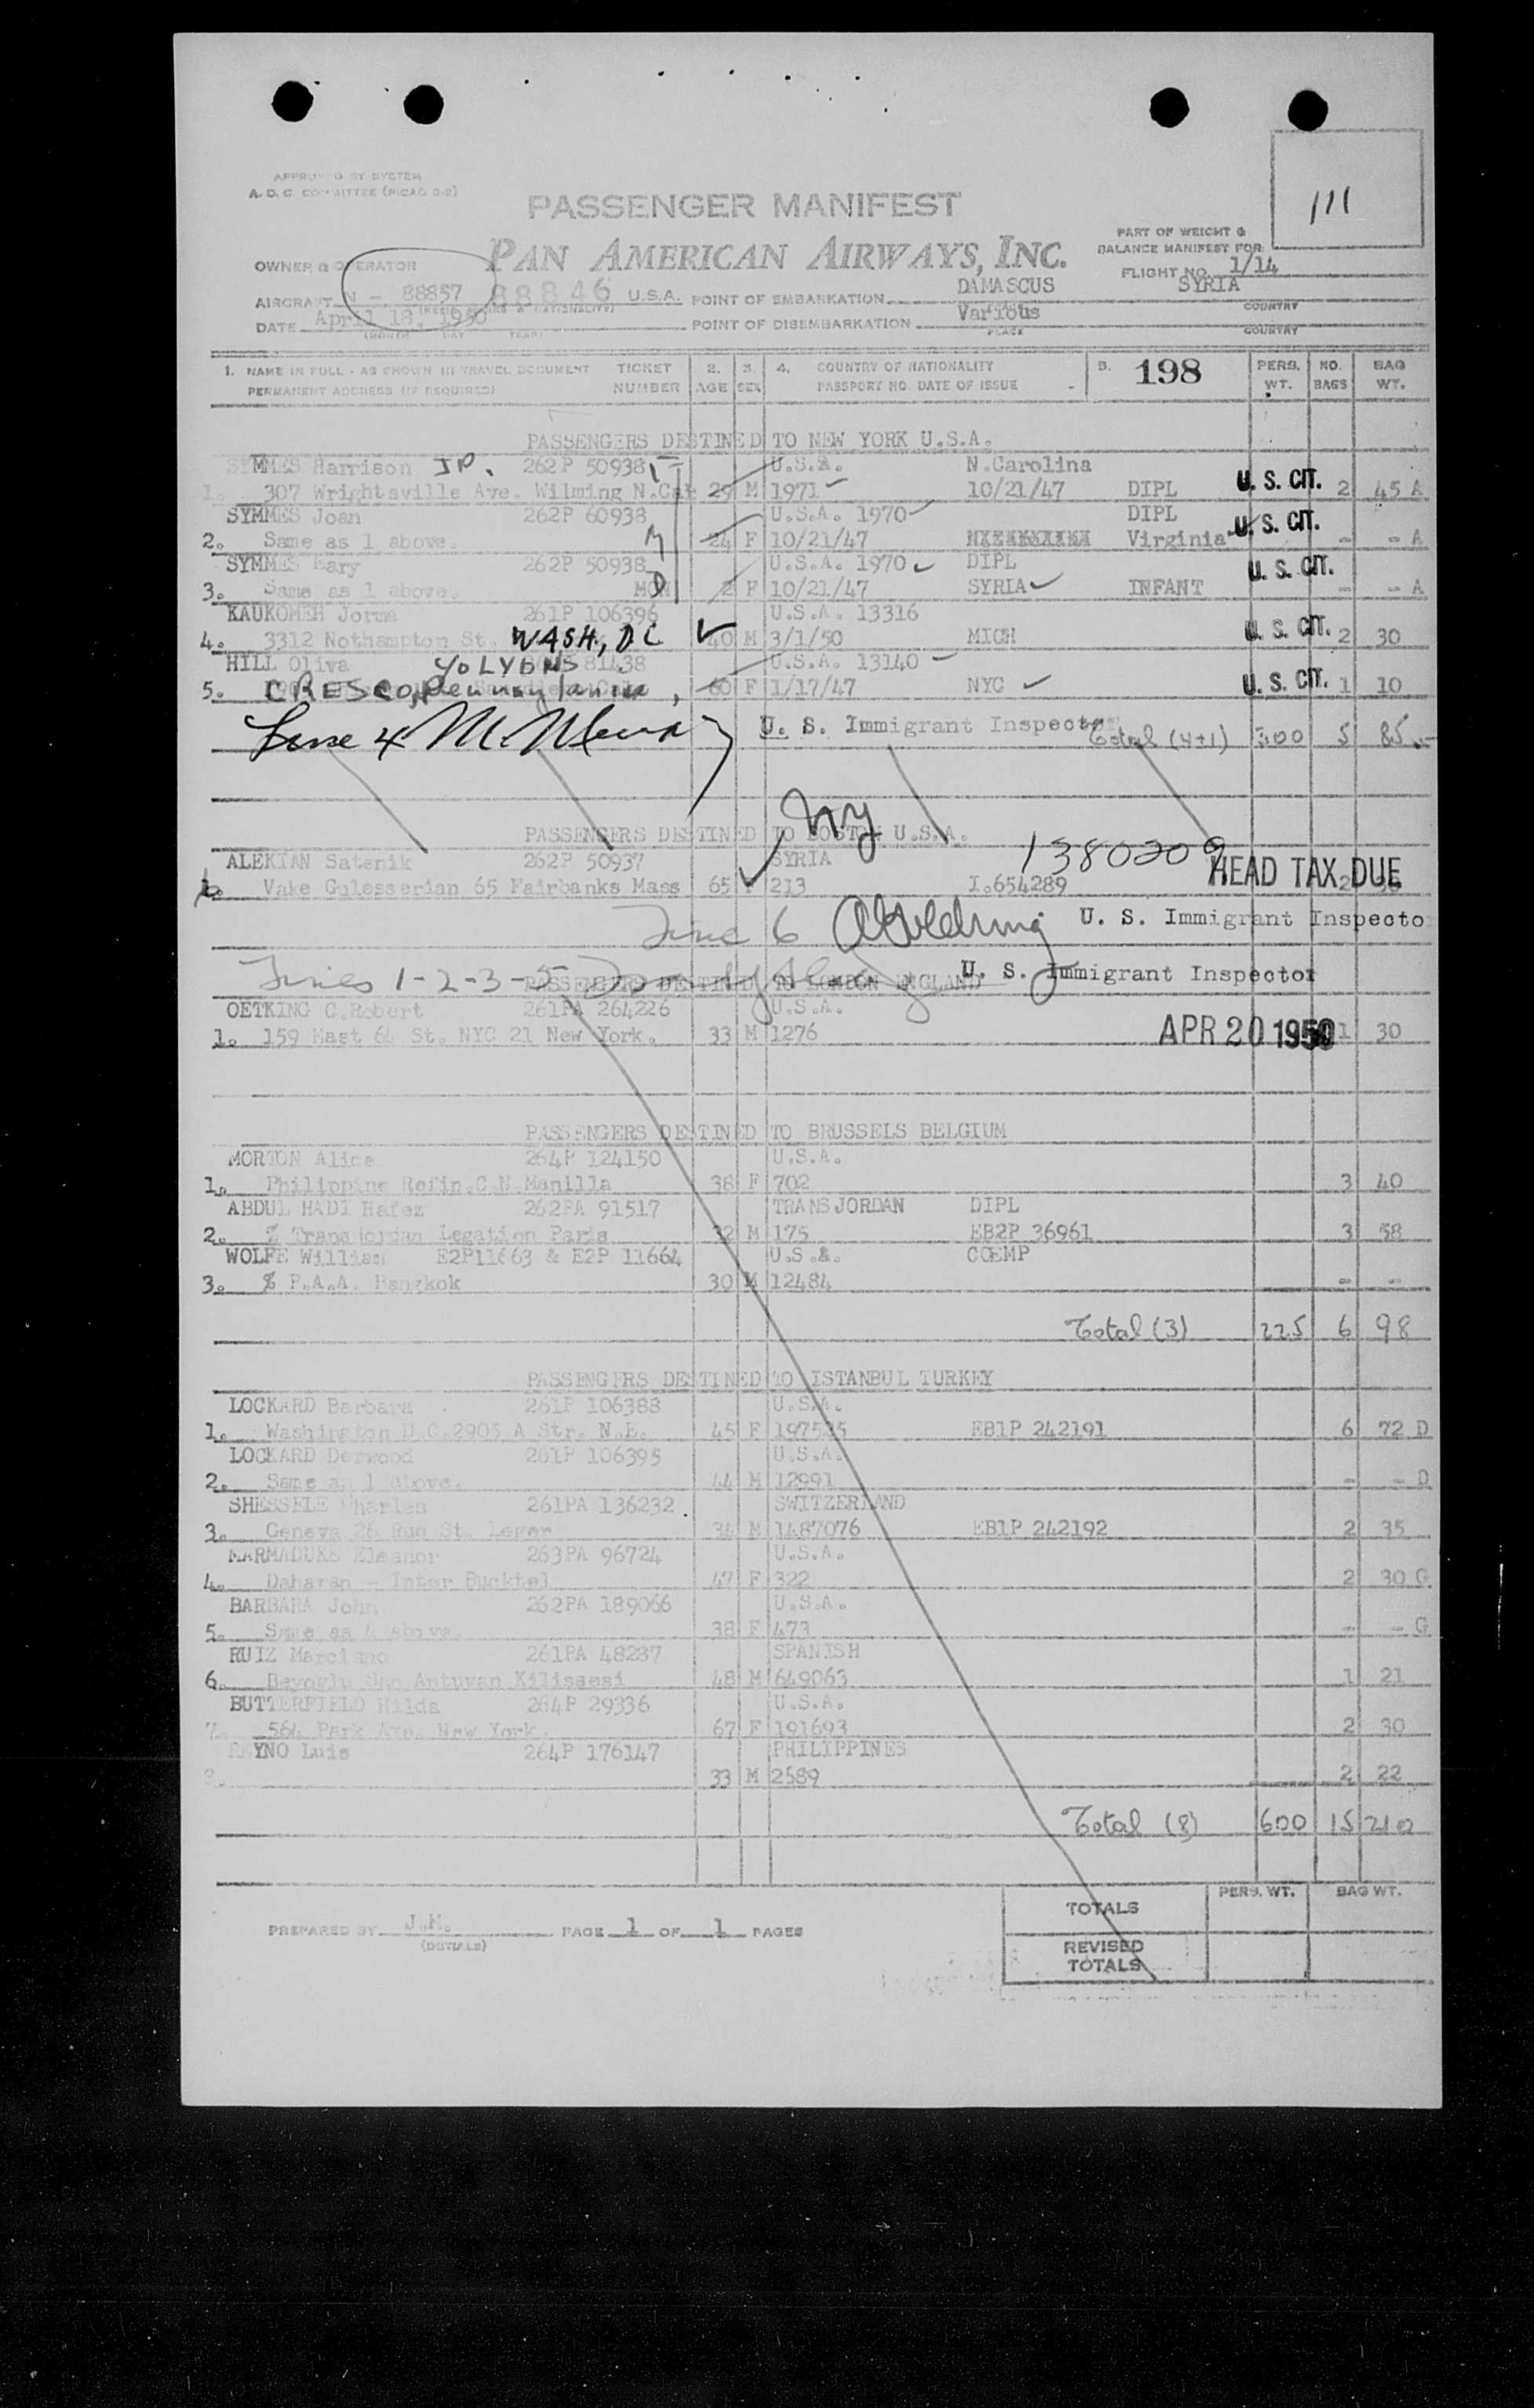 APPROVED BY SYSTEM
A. D. C. COMMITTEE (PICAO D-2)
111
PASSENGER MANIFEST
PAN AMERICAN AIRWAYS, INC.
PART OF WEIGHT &
BALANCE MANIFEST FOR:
FLIGHT NO. 1/14
OWNER & OPERATOR
AIRCRAFT N - 88857 88846 U.S.A. POINT OF EMBARKATION DAMASCUS SYRIA
PLACE COUNTRY
DATE April 18, 1950 POINT OF DISEMBARKATION Various
(MONTH DAY YEAR) PLACE COUNTRY
1. NAME IN FULL - AS SHOWN IN TRAVEL DOCUMENT TICKET 2. 3. 4. COUNTRY OF NATIONALITY 5. 198 PERS. NO. BAG
PERMANENT ADDRESS (IF REQUIRED) NUMBER AGE SEX PASSPORT NO. DATE OF ISSUE WT. BAGS WT.
PASSENGERS DESTINED TO NEW YORK U.S.A.
SYMMES Harrison JR. 262P 50938 U.S.A. N.Carolina
1. 307 Wrightsville Ave. Wilming N.Car 29 M 1971 10/21/47 DIPL U. S. CIT. 2 45 A
SYMMES Joan 262P 60938 U.S.A. 1970 DIPL
2. Same as 1 above. M 24 F 10/21/47 Virginia U. S. CIT. - - A
SYMMES Mary 262P 50938 U.S.A. 1970 DIPL
3. Same as 1 above. 2 F 10/21/47 SYRIA INFANT U. S. CIT. - - A
KAUKOMEH Jorma 261P 106396 U.S.A. 13316
4. 3312 Nothampton St. WASH, DC 40 M 3/1/50 MICH U. S. CIT. 2 30
HILL Oliva c/o LYONS 81438 U.S.A. 13140
5. CRESCO, Pennsylania, 60 F 1/17/47 NYC U. S. CIT. 1 10
Line 4 U. S. Immigrant Inspector Total (4+1) 300 5 85
NY
PASSENGERS DESTINED TO BOSTON U.S.A.
ALEKIAN Satenik 262P 50937 SYRIA 1380209
6. Vake Gulesserian 65 Fairbanks Mass 65 F 213 I.654289 HEAD TAX DUE 2
Line 6 U. S. Immigrant Inspector
Lines 1-2-3-5 U. S. Immigrant Inspector
PASSENGERS DESTINED TO LONDON ENGLAND
OETKING C.Robert 261PA 264226 U.S.A.
1. 159 East 64 St. NYC 21 New York. 33 M 1276 APR 20 1950 1 30
PASSENGERS DESTINED TO BRUSSELS BELGIUM
MORTON Alice 264P 124150 U.S.A.
1. Philippine Refin.C.N Manilla 38 F 702 3 40
ABDUL HADI Hafez 262PA 91517 TRANSJORDAN DIPL
2. % Transjordan Legation Paris 32 M 175 EB2P 36961 3 58
WOLFE William E2P11663 & E2P 11664 U.S.A. COEMP
3. % P.A.A. Bangkok 30 M 12484 - -
Total (3) 225 6 98
PASSENGERS DESTINED TO ISTANBUL TURKEY
LOCKARD Barbara 261P 106388 U.S.A.
1. Washington D.C.2905 A Str. N.E. 45 F 197535 EB1P 242191 6 72 D
LOCKARD Derwood 261P 106395 U.S.A.
2. Same as 1 above. 44 M 12991 - - D
SHESSELE Charles 261PA 136232 SWITZERLAND
3. Geneva 26 Rue St. Leger 34 M 1487076 EB1P 242192 2 35
MARMADUKE Eleanor 263PA 96724 U.S.A.
4. Daharan - Inter Bucktel 47 F 322 2 30 G
BARBARA John 262PA 189066 U.S.A.
5. Same as 4 above. 38 F 473 - - G
RUIZ Marciano 261PA 48287 SPANISH
6. Beyoglu San Antuvan Kilissesi 48 M 649063 1 21
BUTTERFIELD Hilda 264P 29336 U.S.A.
7. 564 Park Ave. New York. 67 F 191693 2 30
RAYNO Luis 264P 176147 PHILIPPINES
8. 33 M 2589 2 22
Total (8) 600 15 210
PERS. WT. BAG WT.
TOTALS
PREPARED BY J.H. PAGE 1 OF 1 PAGES
(INITIALS)
REVISED
TOTALS